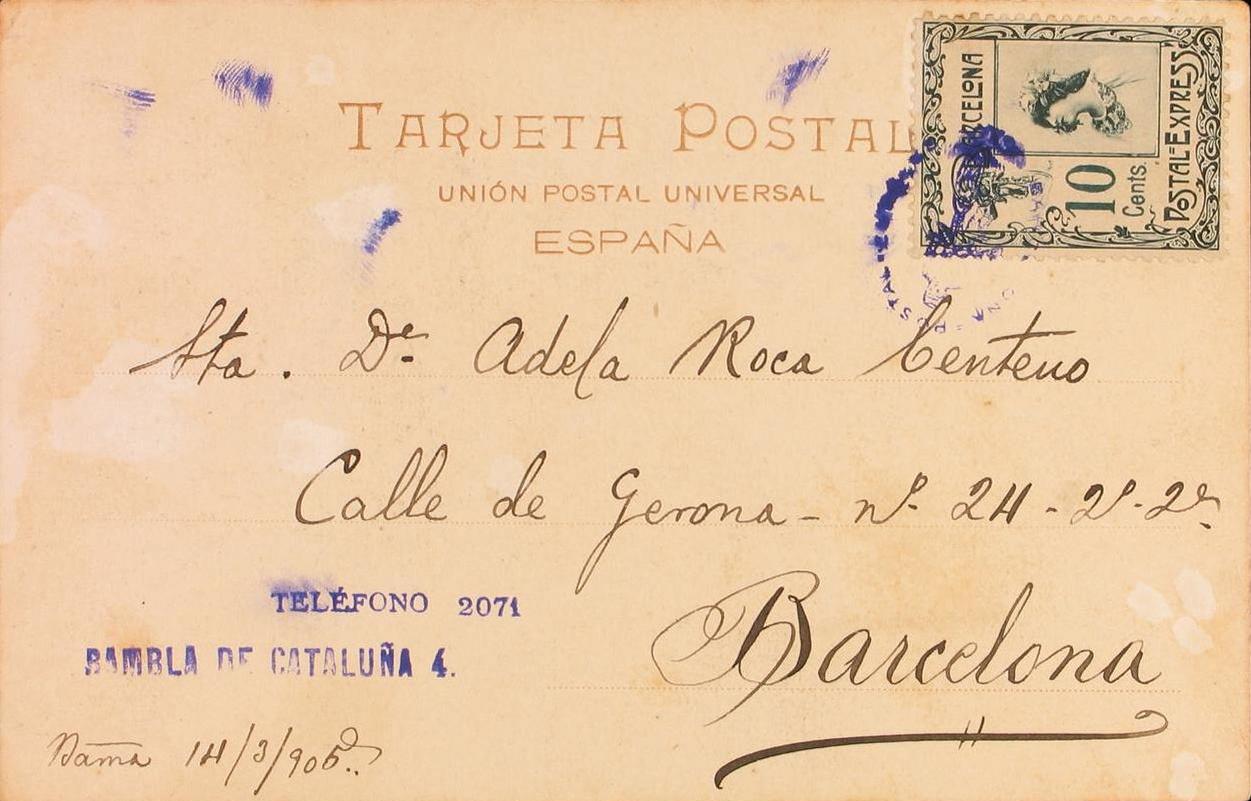 TARJETA POSTAL
UNIÓN POSTAL UNIVERSAL
ESPAÑA
BARCELONA
10
Cents.
POSTAL=EXPRESS
Sta. Dª Adela Roca Centeno
Calle de Gerona - nº 24 - 2º - 2ª
TELÉFONO 2071
RAMBLA DE CATALUÑA 4.
Barcelona
Barna 14/3/905